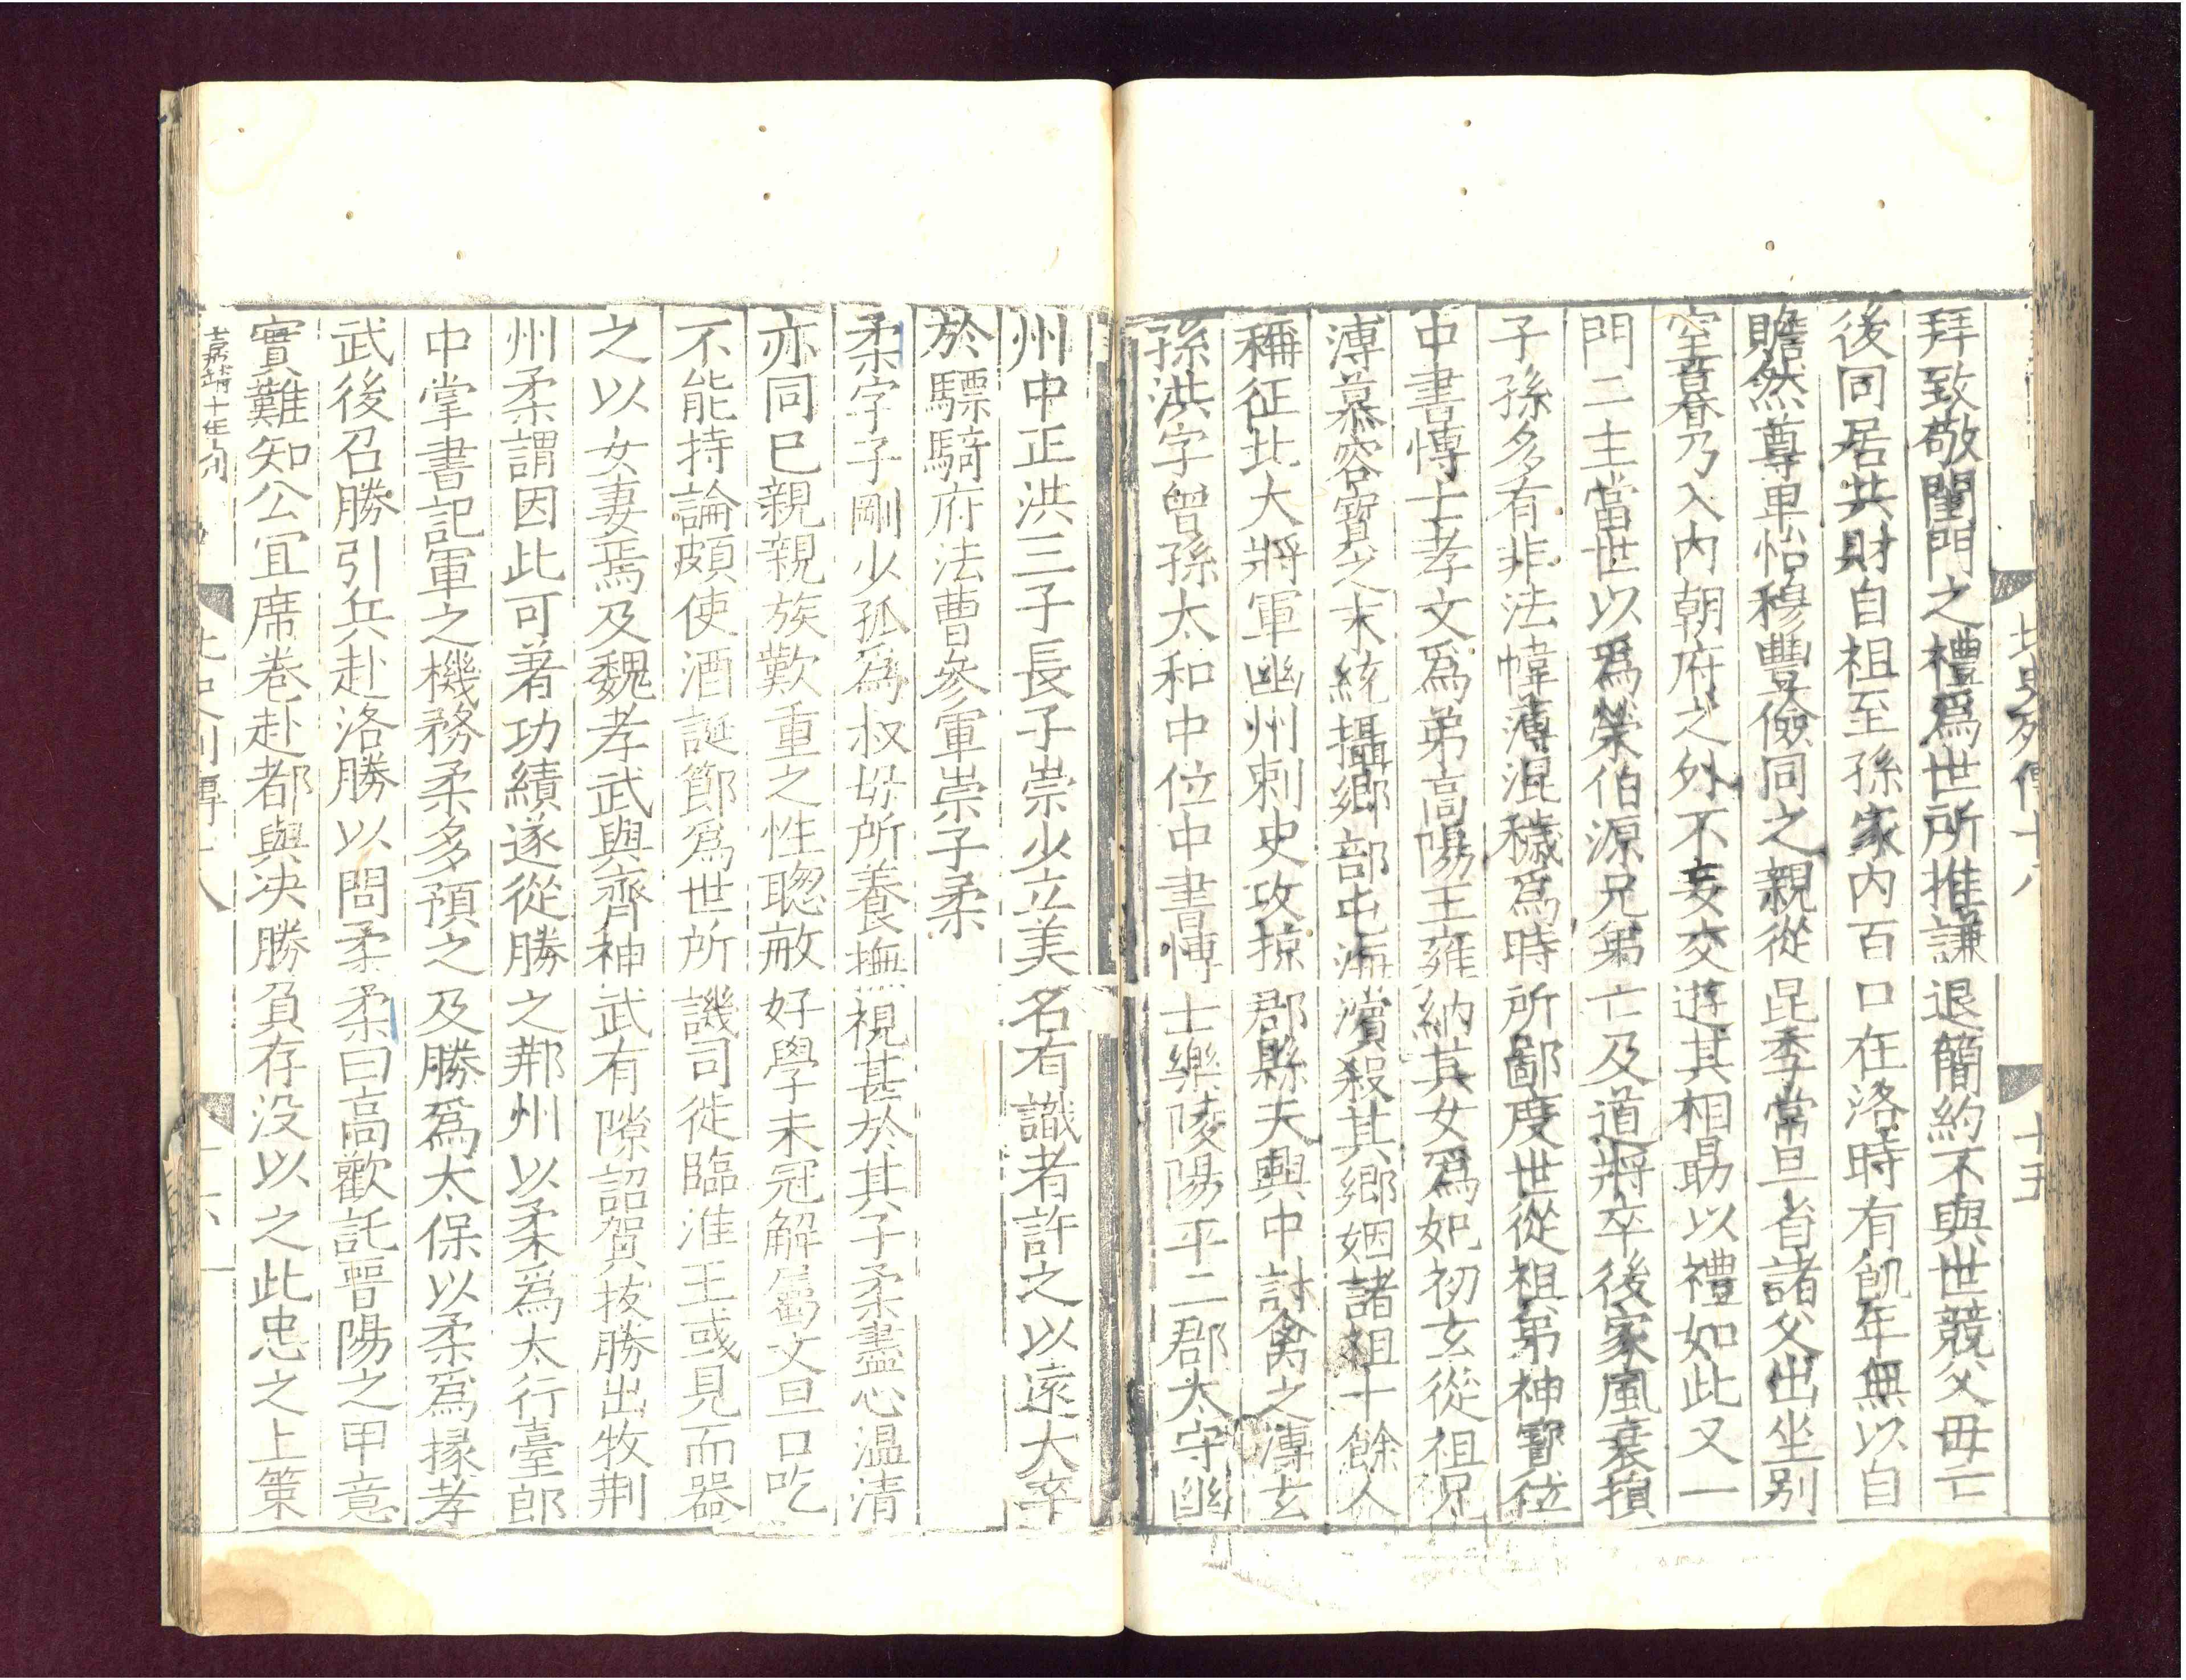 北史列傳十八
十五
拜致敬閨門之禮爲世所推謙退簡約不與世競父母亡
後同居共財自祖至孫家内百口在洛時有飢年無以自
贍然尊卑怡穆豐儉同之親從昆季常旦省諸父出坐别
室暮乃入内朝府之外不妄交遊其相勗以禮如此又一
門二主當世以爲榮伯源兄弟亡及道將卒後家風衰損
子孫多有非法幃薄混穢爲時所鄙度世從祖弟神寶位
中書愽士孝文爲弟高陽王雍納其女爲妃初玄從祖兄
溥慕容寳之末統攝鄉部屯海濱殺其鄉姻諸祖十餘人
稱征北大將軍幽州刺史攻掠郡縣天興中討禽之溥玄
孫洪字曾孫太和中位中書愽士樂陵陽平二郡太守幽
州中正洪三子長子崇少立美名有識者許之以遠大卒
於驃騎府法曹參軍崇子柔
柔字子剛少孤爲叔母所養撫視甚於其子柔盡心温清
亦同已親親族歎重之性聦敏好學未冠解屬文但口吃
不能持論頗使酒誕節爲世所譏司徒臨淮王彧見而器
之以女妻焉及魏孝武與齊神武有隙詔賀拔勝出牧荆
州柔謂因此可著功績遂從勝之荆州以柔爲大行臺郎
中掌書記軍之機務柔多預之及勝爲太保以柔爲掾孝
武後召勝引兵赴洛勝以問柔柔曰高歡託晉陽之甲意
實難知公宜席卷赴都與决勝負存没以之此忠之上策
嘉靖十年刊
北史列傳十八
十六